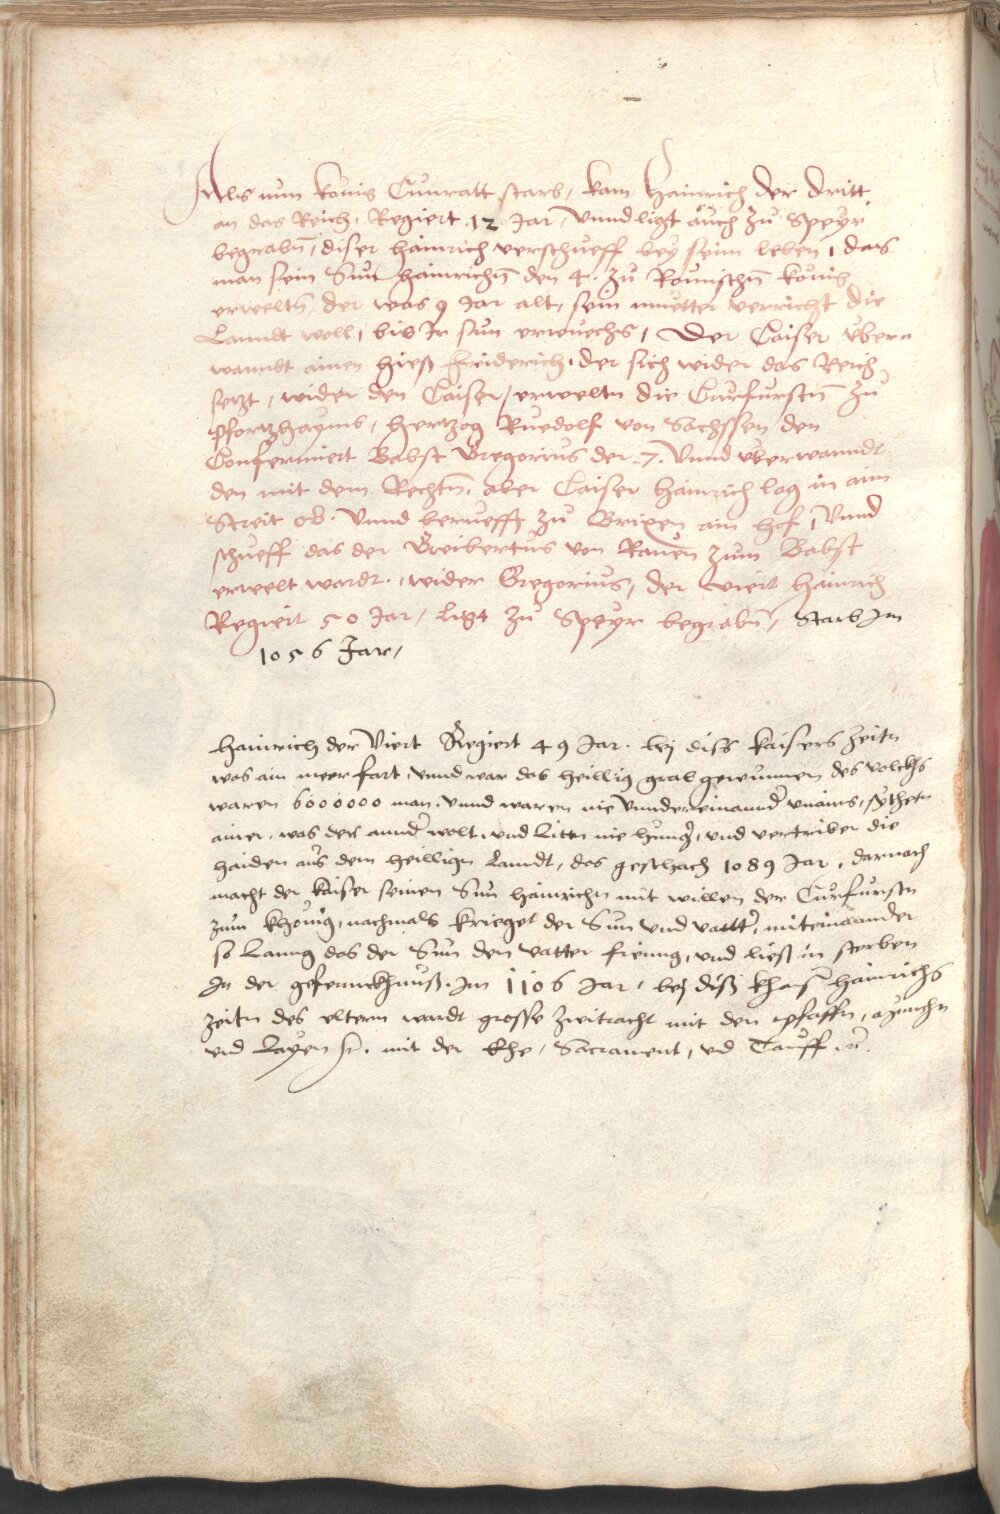 Als nun konig Cunratt starb, kam Hainrich der dritt
an das Reich, Regiert 12 Jar, Vnnd ligt auch zu Speyr
begrabn̄, diser hainrich verschueff bey seim leben, das
man sein Sun hainrichn̄ den 4. zu Romischn̄ konig
erweltn̄, der was 9 Jar alt, sein muetter verricht die
Lanndt woll, bis Ir sun erwuechs, Der Caiser vber-
wanndt ainen hieß Friderich, der sich wider das Reich
setzt, wider den Caiser, erweltn die Curfurstn̄ zu
Pfortzhayms, hertzog Ruedolf von Sachssen den
Confermiert Babst Gregorius der .7. Vnnd vberwanndt
den mit dem Rechtn̄, aber Caiser hainrich lag in aim
Streit ob. Vnnd beruefft zu Brixen ain hof, Vnnd
schueff das der Gwibertus von Rauen̄ zum Babst
erwelt wardt, wider Gregorius, der viert hainrich
Regiert 50 Jar, ligt zu Speyr begrabn̄, Starb Im
1056 Jare,
Hainrich der Viert Regiert 49 Jar. bej diss kaisers zeitn
was ain meerfart, vnnd war das heillig grab gewunnen des volckhs
waren 6000000 man. vnnd waren nie vnnder einannder vnains,
ainer, was der annder wolt, vnd littn nie hunger, vnd vertriben die
haiden aus dem heillign Lanndt, das geschach 1089 Jar, darnach
macht der kaiser seinen Sun hainrichn mit willen der Curfurstn
zum khonig, nachmals krieget der Sun vnd vatter, miteinannder
so lanng das der Sun den vatter fienng, vnd ließ in sterben
In der gefennckhnuß. Im 1106 Jar, bej diß khais hainrichs
zeitn des eltern wardt grosse zwitracht mit den pfaffn,
vnd Layen mit der Ehe, Sacrament, vnd Tauff